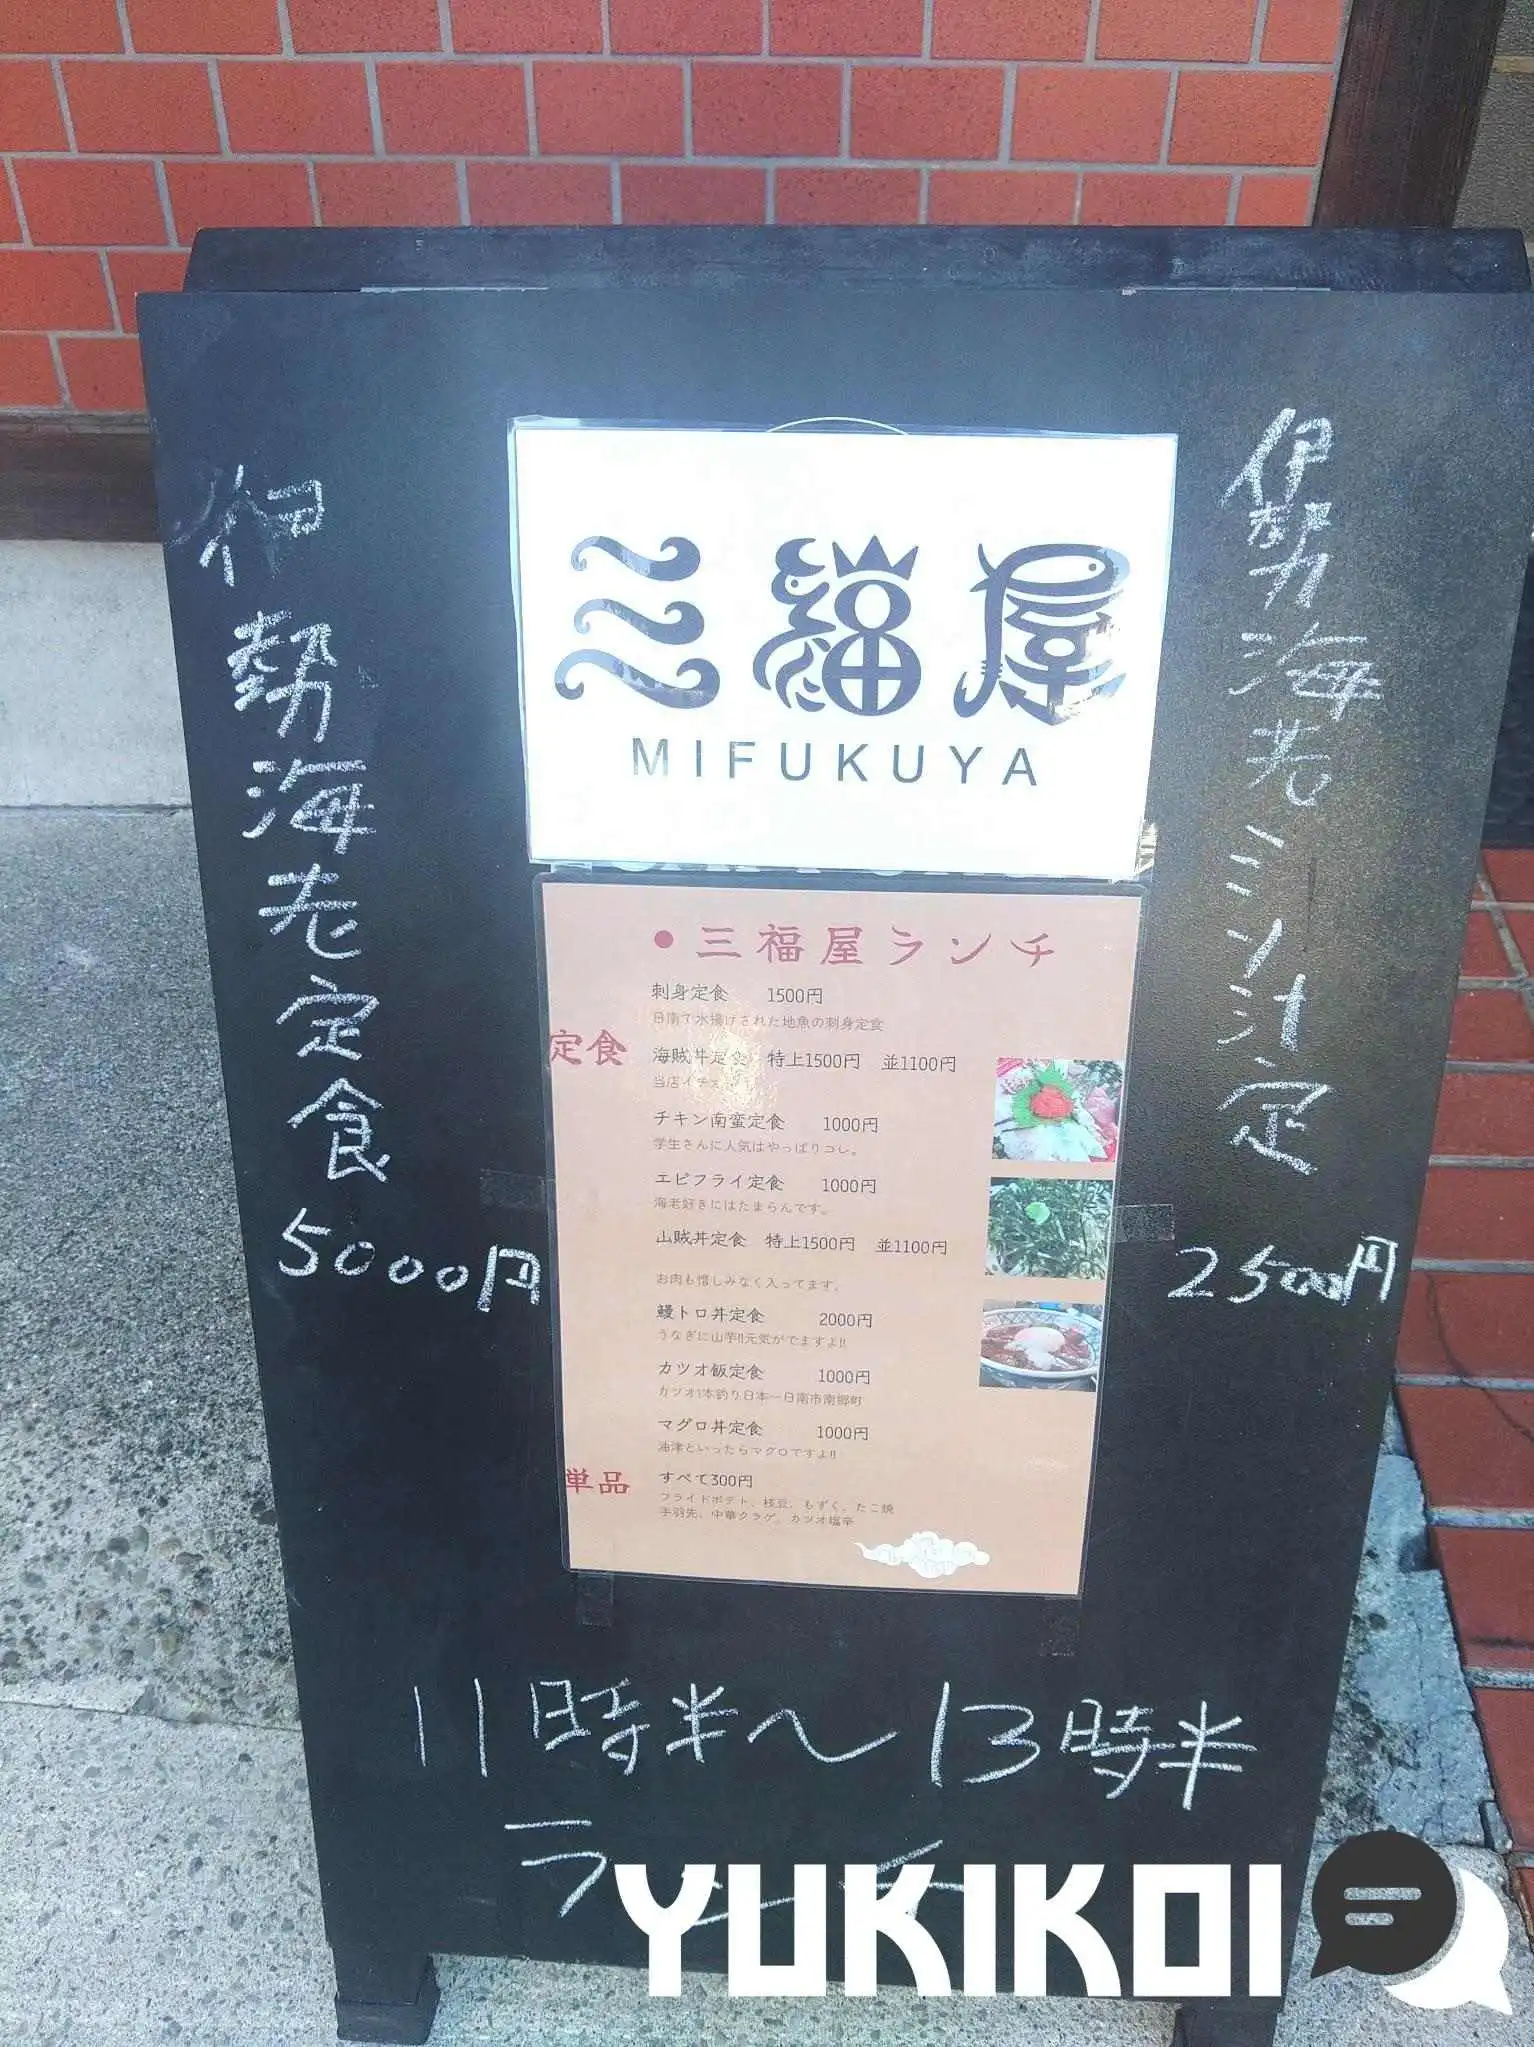 三福屋
MIFUKUYA
伊勢海老定食
5000円
伊勢海老ミソ汁定
2500円
三福屋ランチ
定食
刺身定食 1500円
日南で水揚げされた地魚の刺身定食
海賊丼定食 特上1500円 並1100円
当店イチオ
チキン南蛮定食 1000円
学生さんに人気はやっぱりコレ。
エビフライ定食 1000円
海老好きにはたまらんです。
山賊丼定食 特上1500円 並1100円
お肉も惜しみなく入ってます。
鰻トロ丼定食 2000円
うなぎに山芋!!元気がでますよ!!
カツオ飯定食 1000円
カツオ1本釣り日本一日南市南郷町
マグロ丼定食 1000円
油津といったらマグロですよ!!
単品
すべて300円
フライドポテト、枝豆、もずく、たこ焼
手羽先、中華クラゲ、カツオ塩辛
11時半〜13時半
ランチ
YUKIKOI